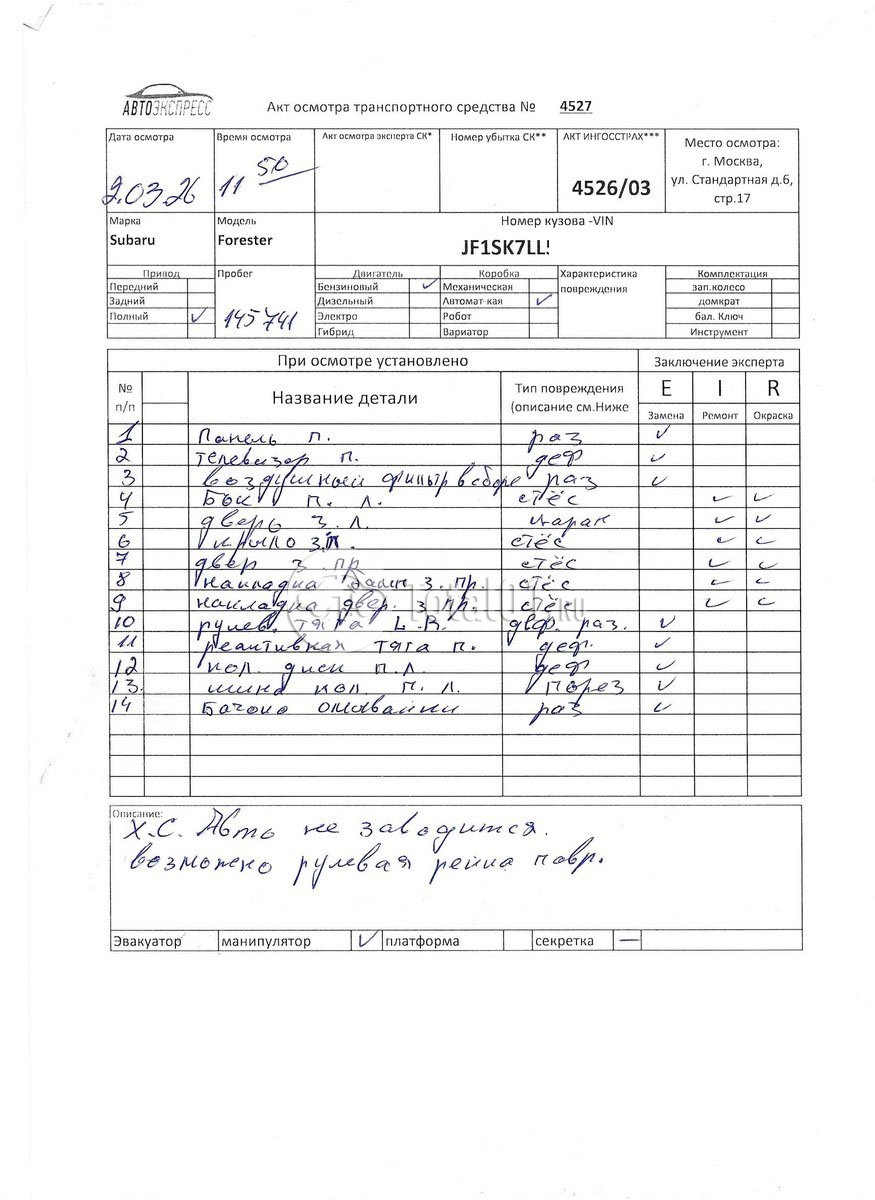 АВТОЭКСПРЕСС
Акт осмотра транспортного средства № 4527
Дата осмотра Время осмотра Акт осмотра эксперта СК* Номер убытка СК** АКТ ИНГОССТРАХ*** Место осмотра:
2.03.26 11 50 4526/03 г. Москва,
ул. Стандартная д.6,
стр.17
Марка Модель Номер кузова -VIN
Subaru Forester JF1SK7LL
Привод Пробег Двигатель Коробка Характеристика Комплектация
Передний Бензиновый ✓ Механическая повреждения зап.колесо
Задний Дизельный Автомат-кая ✓ домкрат
Полный ✓ 145741 Электро Робот бал. Ключ
Гибрид Вариатор Инструмент
При осмотре установлено Заключение эксперта
№ п/п Название детали Тип повреждения (описание см.Ниже E I R
Замена Ремонт Окраска
1 Панель п. раз ✓
2 телевизор п. деф ✓
3 воздушный фильтр в сборе раз ✓
4 Бок п. л. стёс ✓ ✓
5 дверь з. л. царап ✓ ✓
6 крыло з.п. стёс ✓ ✓
7 двер з. пр стёс ✓ ✓
8 накладка з. пр. стёс ✓ ✓
9 накладка двер. з пр. стёс ✓ ✓
10 рулев. тяга L.R. деф. раз. ✓
11 реактивная тяга п. деф. ✓
12 кол. диск п.л деф ✓
13. шина кол. п. л. порез ✓
14 Бачок омывайки раз ✓
TotalOFF.RU
Описание:
Х.С. Авто не заводится.
возможно рулевая рейка повр.
Эвакуатор манипулятор ✓ платформа секретка —